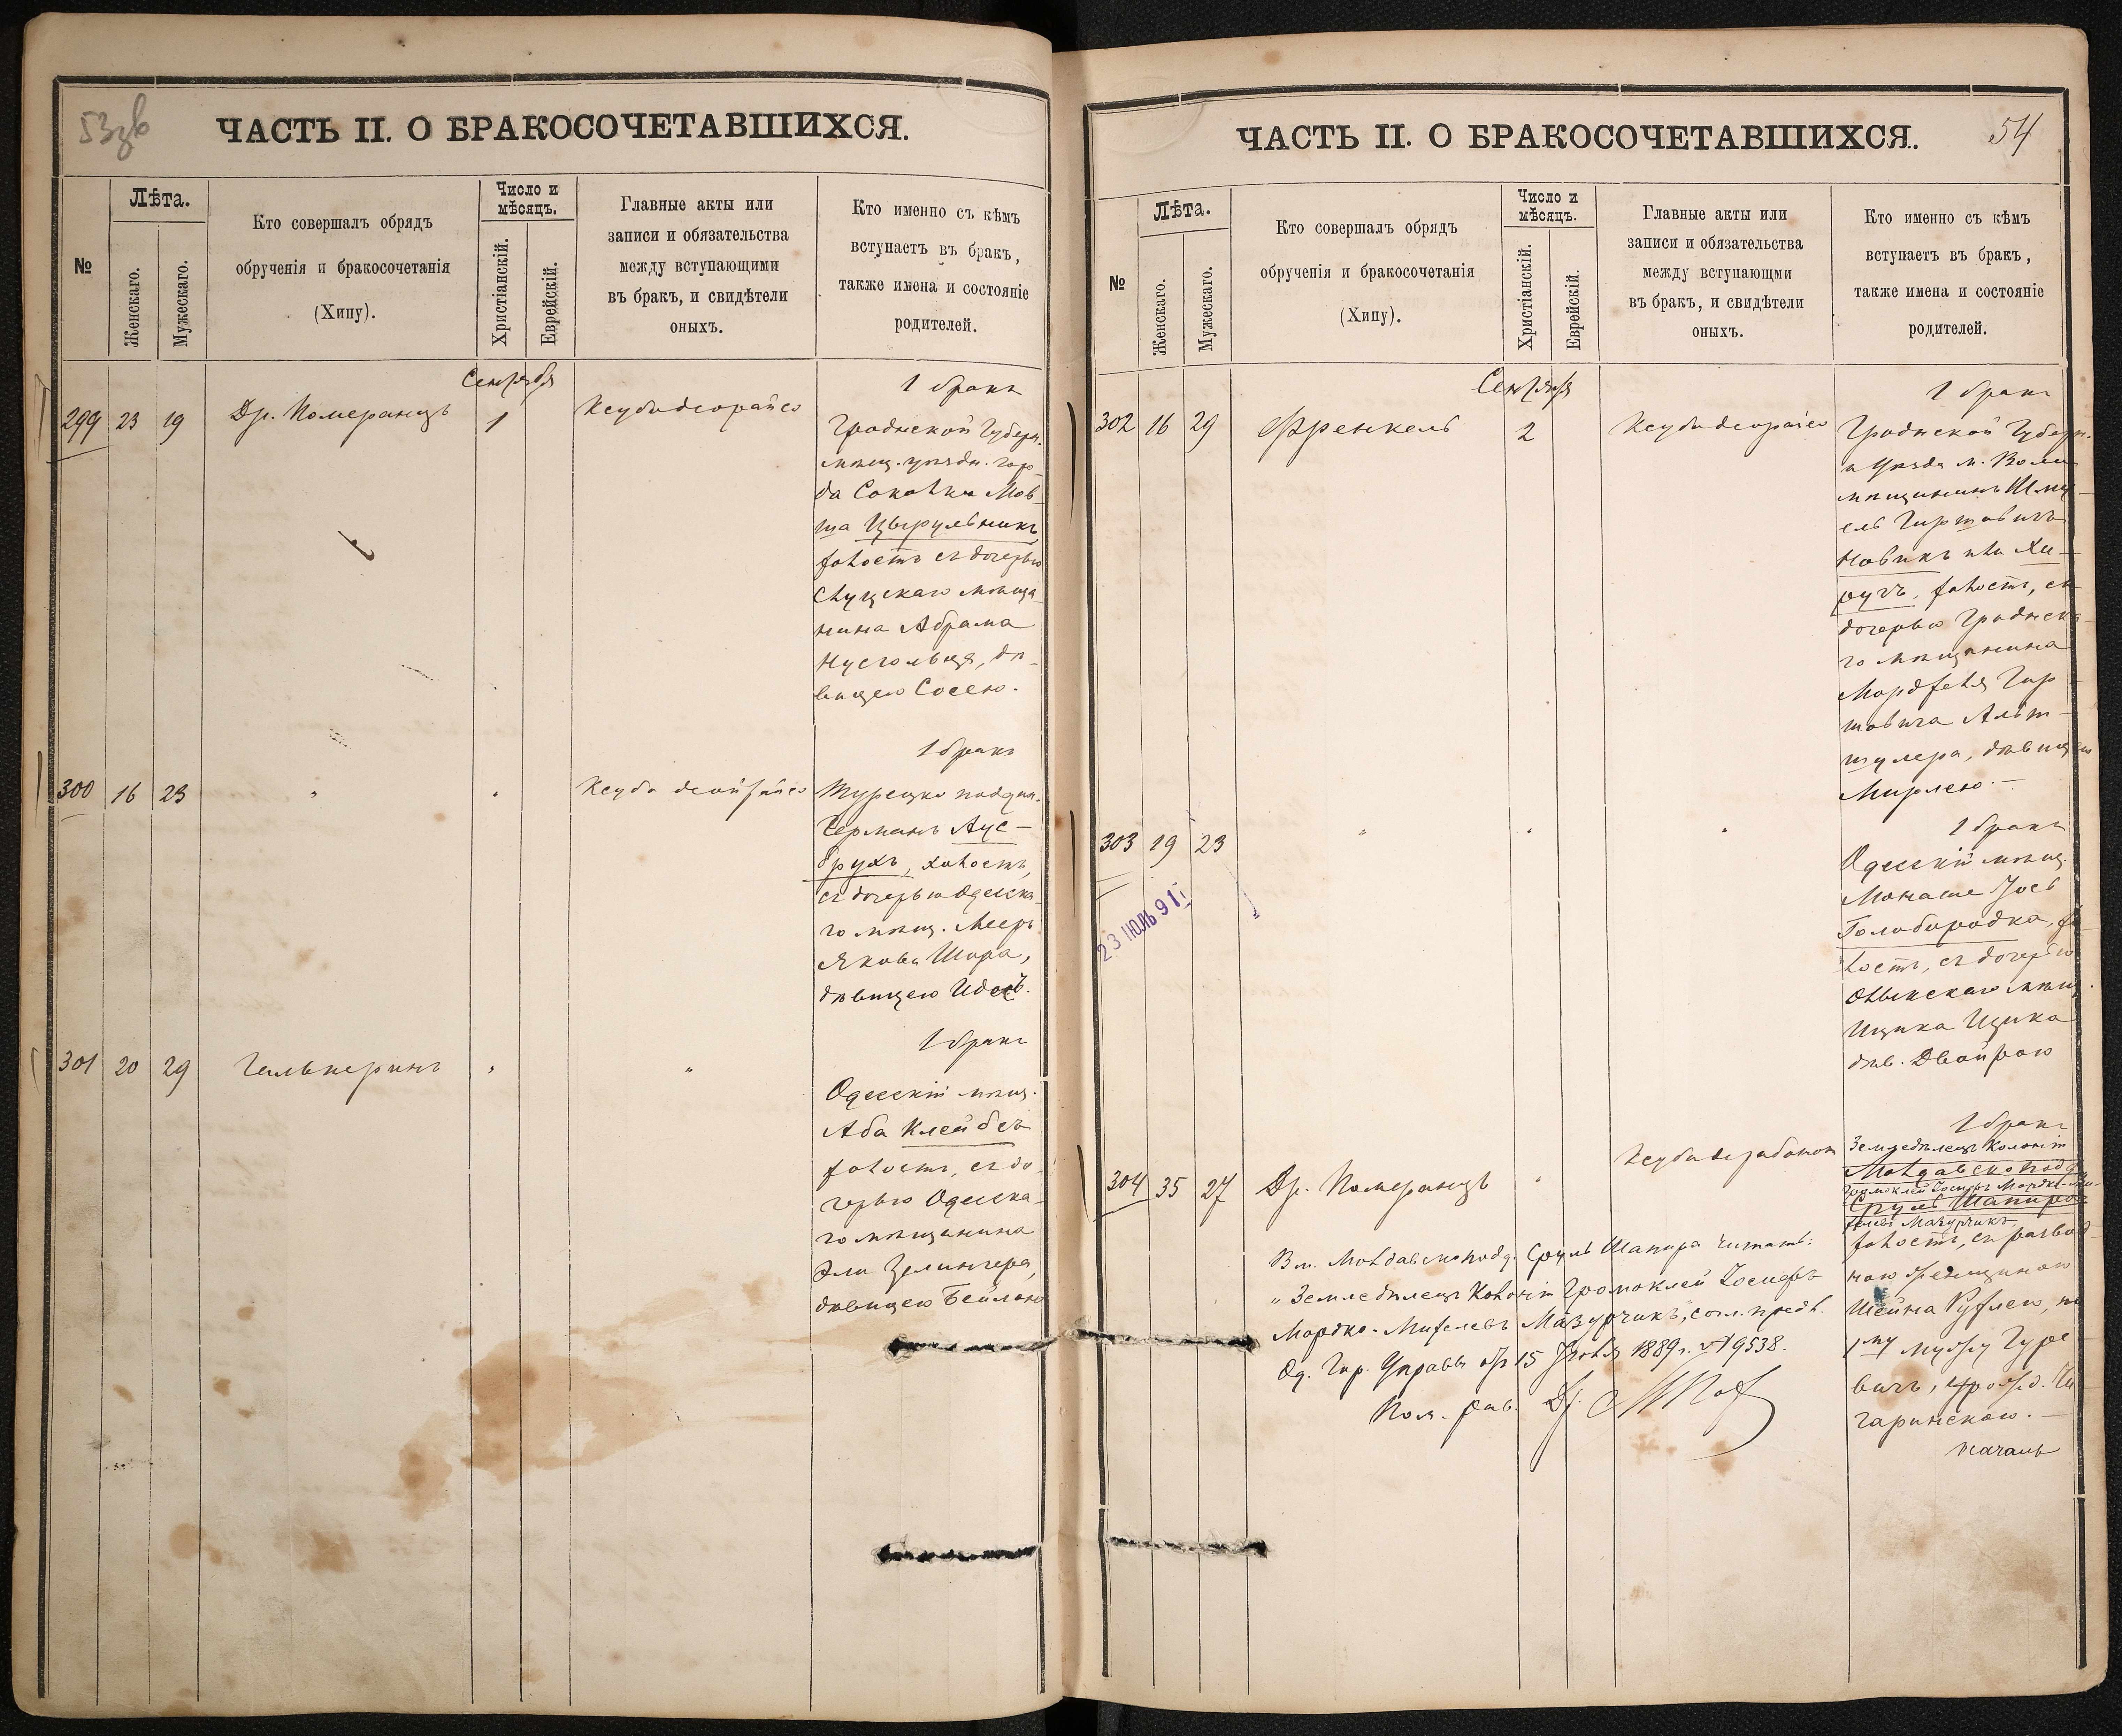 53зв
ЧАСТЬ II. О БРАКОСОЧЕТАВШИХСЯ.
№
Лѣта.
Женскаго.
Мужескаго.
Кто совершалъ обрядъ
обрученія и бракосочетанія
(Хипу).
Число и
мѣсяцъ.
Христіанскій.
Еврейскій.
Главные акты или
записи и обязательства
между вступающими
въ бракъ, и свидѣтели
оныхъ.
Кто именно съ кѣмъ
вступаетъ въ бракъ,
также имена и состояніе
родителей.
Сентября
299 23 19 Др. Померанцъ 1
1 бракъ
Гродненской Губерн.
мѣщ. уѣздн. горо-
да Соколки Мов-
ша Цырульникъ
холостъ съ дочерью
Слуцкаго мѣща-
нина Абрама
Нусгольца, дѣ-
вицею Сосею.
300 16 23 " "
1 бракъ
Турецко поддан.
Германъ Аус-
брухъ, холостъ,
съ дочерью Одесска-
го мѣщ. Меера
Якова Шора,
дѣвицею Идесъ.
301 20 29 Гальперинъ " "
1 бракъ
Одесскій мѣщ.
Аба Клейбсъ
холостъ, съ до-
черью Одесска-
го мѣщанина
Эли Зелингера,
дѣвицею Бейлою
54
ЧАСТЬ II. О БРАКОСОЧЕТАВШИХСЯ.
№
Лѣта.
Женскаго.
Мужескаго.
Кто совершалъ обрядъ
обрученія и бракосочетанія
(Хипу).
Число и
мѣсяцъ.
Христіанскій.
Еврейскій.
Главные акты или
записи и обязательства
между вступающми
въ бракъ, и свидѣтели
оныхъ.
Кто именно съ кѣмъ
вступаетъ въ бракъ,
также имена и состояніе
родителей.
Сентября
302 16 29 Френкель 2
1 бракъ
Гродненской Губерн.
и Уѣзда м.
мѣщанинъ Шму-
ель Гиршовичъ
Новикъ или Хи-
ручъ, холостъ, съ
дочерью Гродненска-
го мѣщанина
Мордхеля Гир-
шовича Альт-
шулера, дѣвицею
Мирлею.
303 19 23 " " "
23 ІЮЛЬ 91
1 бракъ
Одесскій мѣщ.
Монаше Іось
Голобородка, хо-
лостъ, съ дочерью
Олыкскаго мѣщ.
Ицика Ицика
дѣв. Двойрою
304 35 27 Др. Померанцъ "
1 бракъ
Земледѣлецъ Колоніи
Молдавскоподд.
Громоклей Іосифъ Мордко-Ми-
Сруль Шапиро
хелевъ Мазурчикъ,
холостъ, съ развод-
ною женщиною
Шейна Рухлею, по
1му мужу Гуре-
вичъ, урожд. Чи-
гаринскою.
Вм. Молдавскоподд. Сруль Шапира читать:
"Земледѣлецъ Колоніи Громоклей Іосифъ
Мордко-Михелевъ Мазурчикъ, согл. предл.
Од. Гор. Управы отъ 15 1889 г. № 9538.
Пом. рав. Др.